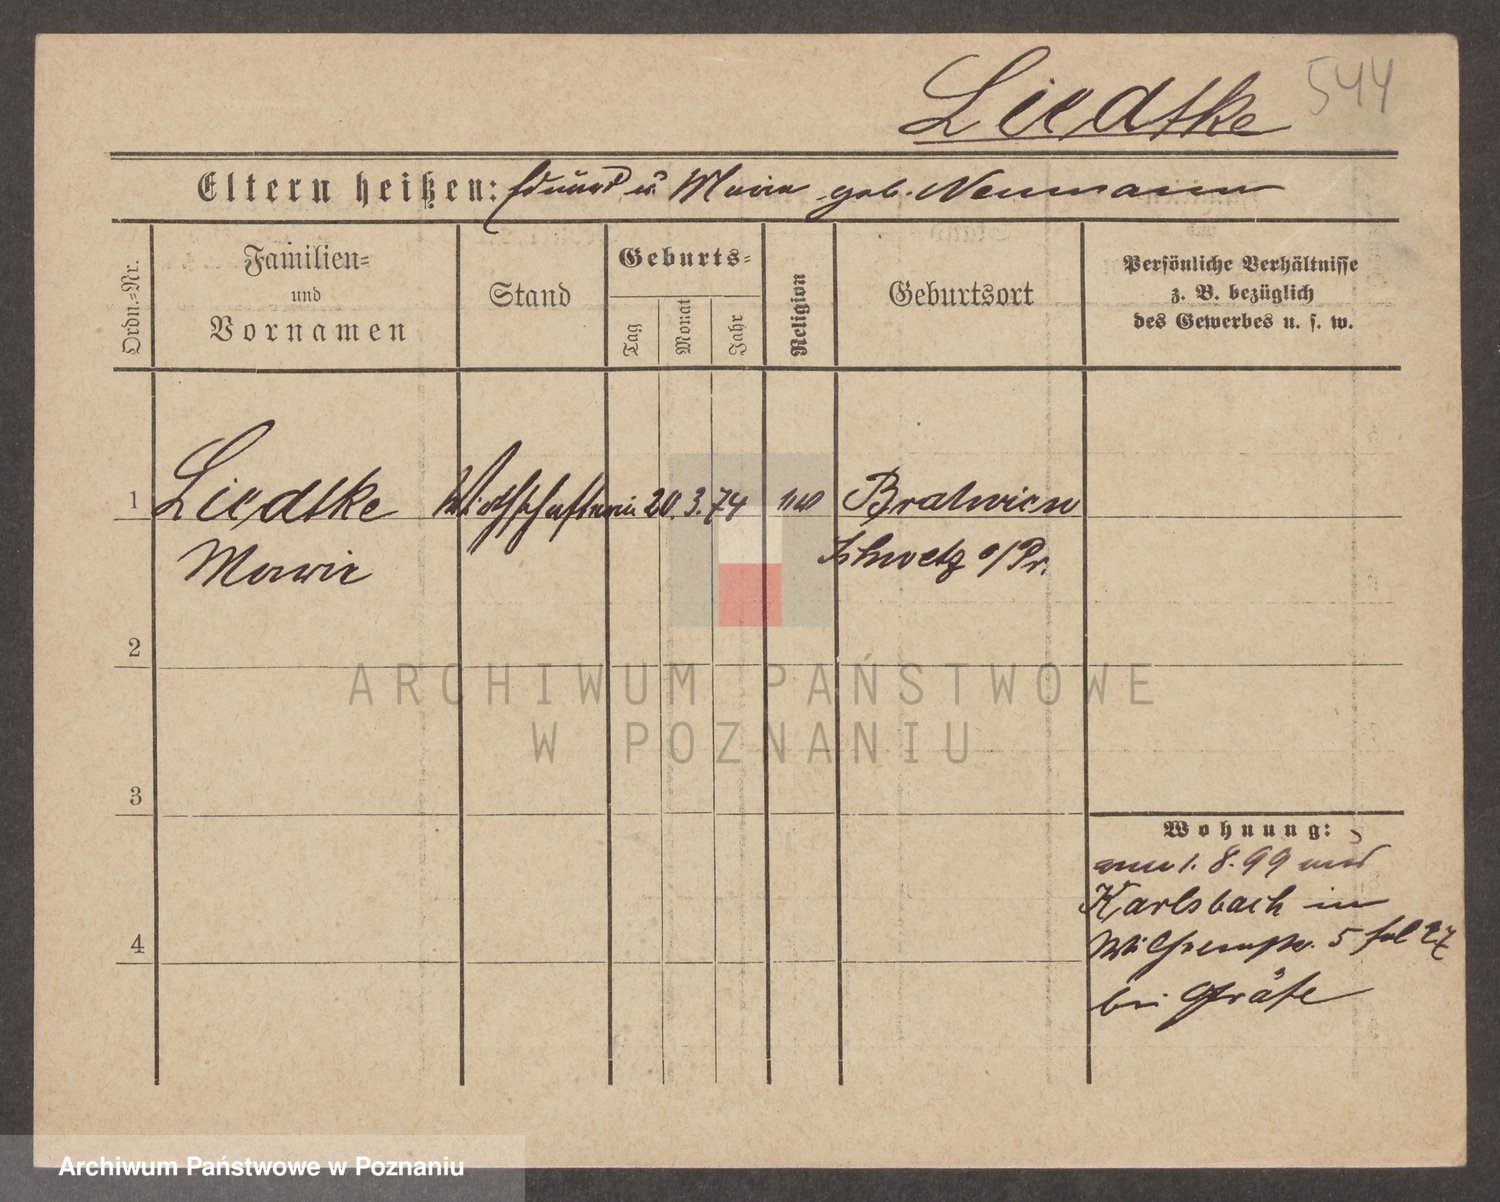 Liedtke 544
Eltern heißen: Eduard u. Maria geb. Neumann
Ordn.=Nr.
Familien=
und
Vornamen
Stand
Geburts=
Tag
Monat
Jahr
Religion
Geburtsort
Persönliche Verhältnisse
z. B. bezüglich
des Gewerbes u. s. w.
1 Liedtke Wirthschafterin 20. 3. 74 Bratwien
Marie Schwetz /Pr.
2
3
4
Wohnung:
1. 8. 99
Karlsbach in
5 27
bei Gräfe
ARCHIWUM PAŃSTWOWE
W POZNANIU
Archiwum Państwowe w Poznaniu